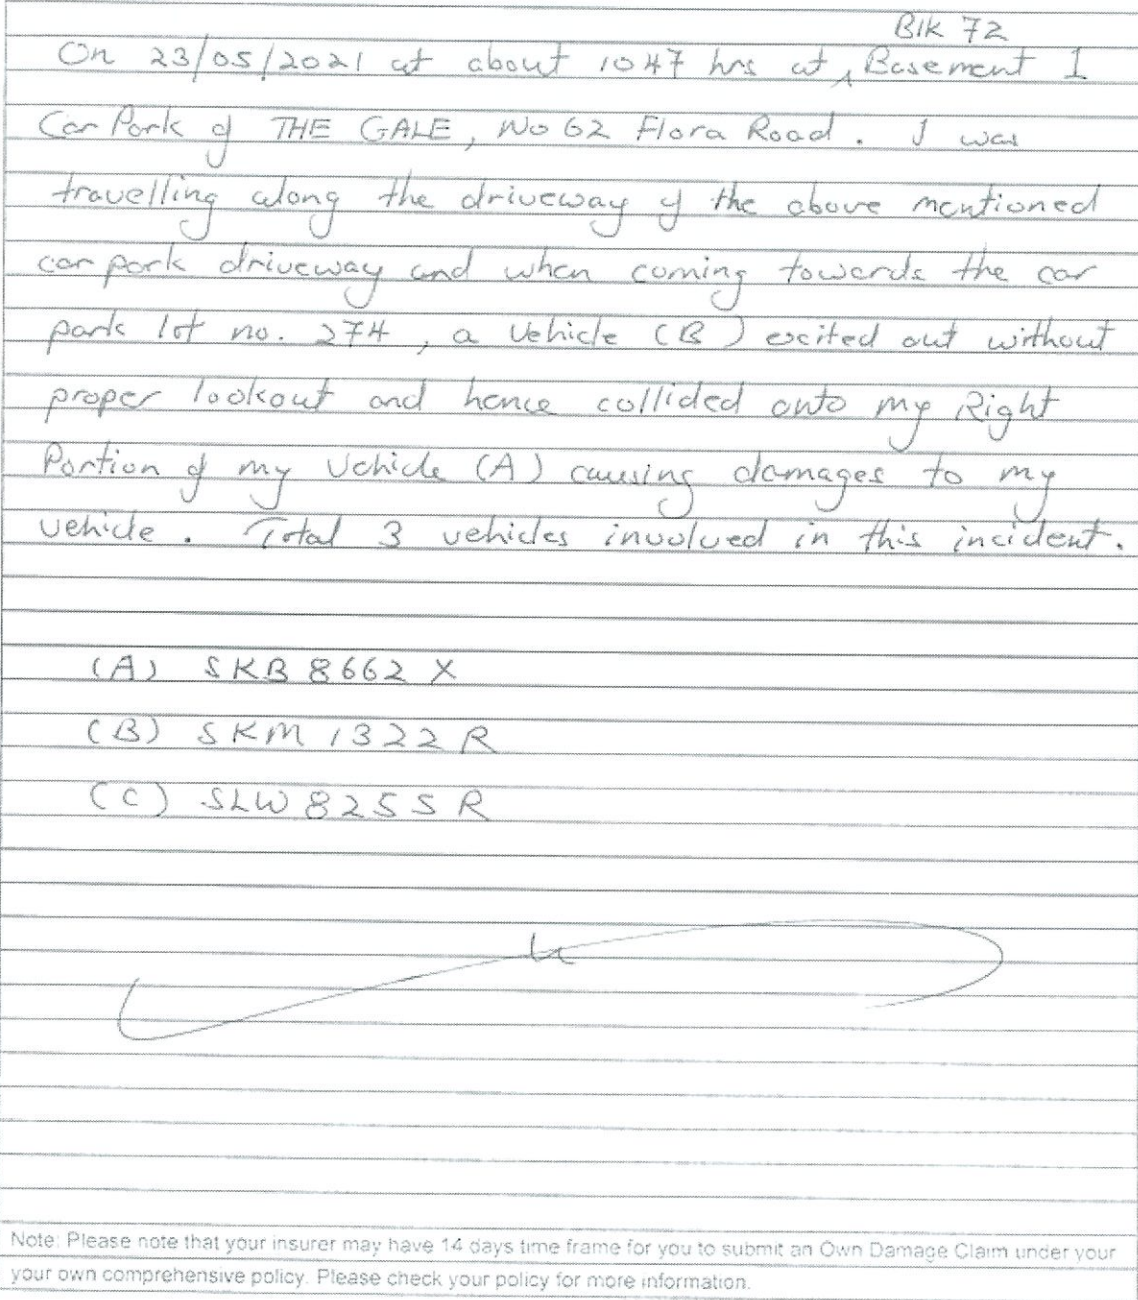 Blk 72
On 23/05/2021 at about 1047 hrs at ^ Basement 1
Car Park of THE GALE, No 62 Flora Road. I was
travelling along the driveway of the above mentioned
car park driveway and when coming towards the car
park lot no. 274, a Vehicle (B) excited out without
proper lookout and hence collided onto my Right
Portion of my Vehicle (A) causing damages to my
vehicle. Total 3 vehicles involved in this incident.
(A) SKB 8662 X
(B) SKM 1322 R
(C) SLW 8255 R
Note: Please note that your insurer may have 14 days time frame for you to submit an Own Damage Claim under your
your own comprehensive policy. Please check your policy for more information.